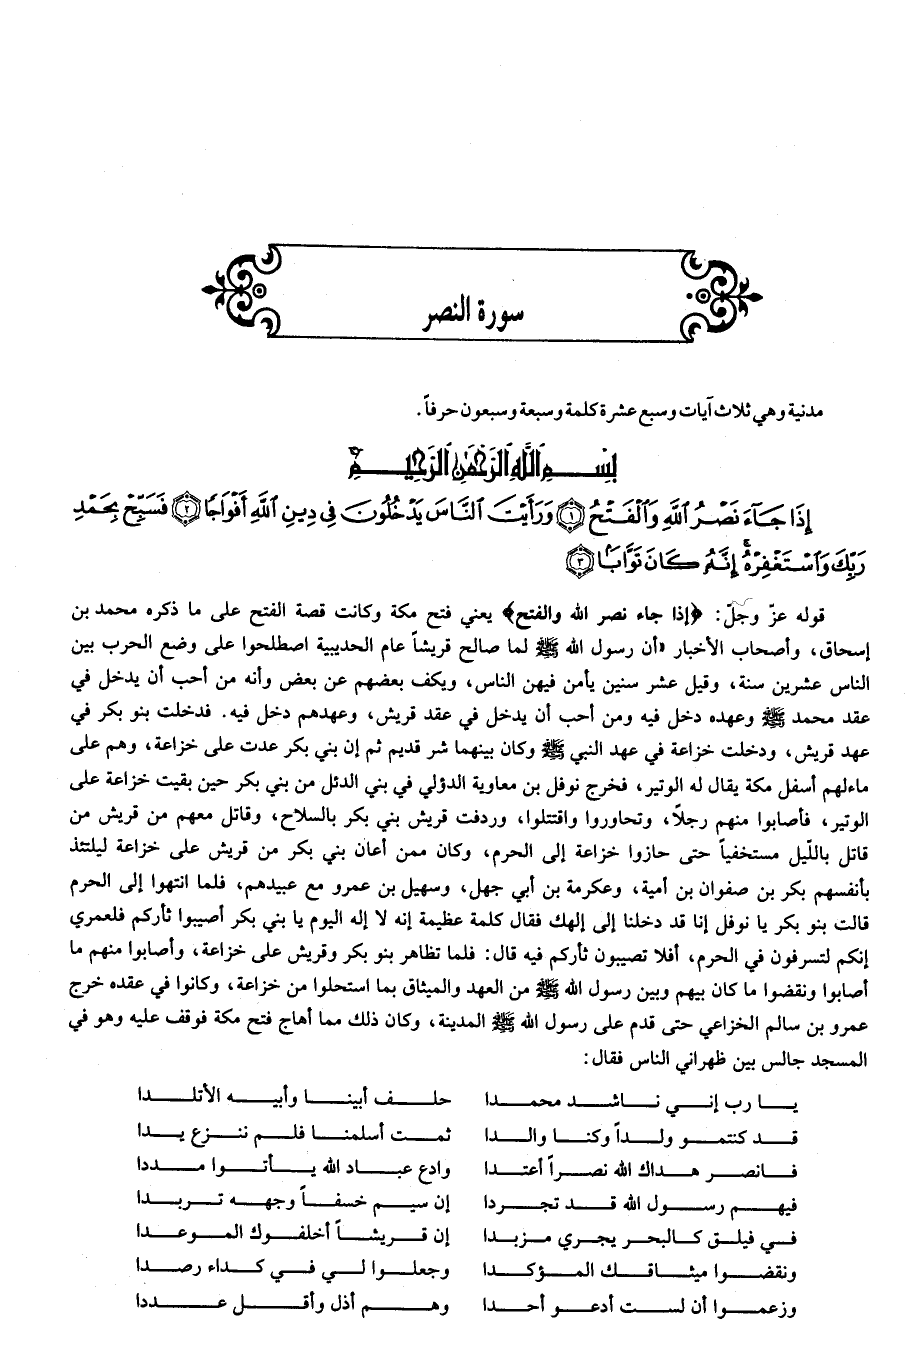 سورة النصر
مدنية وهي ثلاث آيات وسبع عشرة كلمة وسبعة وسبعون حرفاً.
بِسْمِ ٱللَّهِ ٱلرَّحْمَٰنِ ٱلرَّحِيمِ
إِذَا جَآءَ نَصْرُ ٱللَّهِ وَٱلْفَتْحُ ﴿١﴾ وَرَأَيْتَ ٱلنَّاسَ يَدْخُلُونَ فِى دِينِ ٱللَّهِ أَفْوَاجًا ﴿٢﴾ فَسَبِّحْ بِحَمْدِ
رَبِّكَ وَٱسْتَغْفِرْهُ ۚ إِنَّهُۥ كَانَ تَوَّابًۢا ﴿٣﴾
قوله عزّ وجلّ: ﴿إذا جاء نصر الله والفتح﴾ يعني فتح مكة وكانت قصة الفتح على ما ذكره محمد بن
إسحاق، وأصحاب الأخبار «أن رسول الله ﷺ لما صالح قريشاً عام الحديبية اصطلحوا على وضع الحرب بين
الناس عشرين سنة، وقيل عشر سنين يأمن فيهن الناس، ويكف بعضهم عن بعض وأنه من أحب أن يدخل في
عقد محمد ﷺ وعهده دخل فيه ومن أحب أن يدخل في عقد قريش، وعهدهم دخل فيه. فدخلت بنو بكر في
عهد قريش، ودخلت خزاعة في عهد النبي ﷺ وكان بينهما شر قديم ثم إن بني بكر عدت على خزاعة، وهم على
ماءلهم أسفل مكة يقال له الوتير، فخرج نوفل بن معاوية الدؤلي في بني الدئل من بني بكر حين بقيت خزاعة على
الوتير، فأصابوا منهم رجلاً، وتحاوروا واقتتلوا، وردفت قريش بني بكر بالسلاح، وقاتل معهم من قريش من
قاتل بالليل مستخفياً حتى حازوا خزاعة إلى الحرم، وكان ممن أعان بني بكر من قريش على خزاعة ليلتئذ
بأنفسهم بكر بن صفوان بن أمية، وعكرمة بن أبي جهل، وسهيل بن عمرو مع عبيدهم، فلما انتهوا إلى الحرم
قالت بنو بكر يا نوفل إنا قد دخلنا إلى إلهك فقال كلمة عظيمة إنه لا إله اليوم يا بني بكر أصيبوا ثأركم فلعمري
إنكم لتسرفون في الحرم، أفلا تصيبون ثأركم فيه قال: فلما تظاهر بنو بكر وقريش على خزاعة، وأصابوا منهم ما
أصابوا ونقضوا ما كان بيهم وبين رسول الله ﷺ من العهد والميثاق بما استحلوا من خزاعة، وكانوا في عقده خرج
عمرو بن سالم الخزاعي حتى قدم على رسول الله ﷺ المدينة، وكان ذلك مما أهاج فتح مكة فوقف عليه وهو في
المسجد جالس بين ظهراني الناس فقال:
يا رب إني ناشد محمدا حلف أبينا وأبيه الأتلدا
قد كنتمو ولداً وكنا والدا ثمت أسلمنا فلم ننزع يدا
فانصر هداك الله نصراً أعتدا وادع عباد الله يأتوا مددا
فيهم رسول الله قد تجردا إن سيم خسفاً وجهه تربدا
في فيلق كالبحر يجري مزبدا إن قريشاً أخلفوك الموعدا
ونقضوا ميثاقك المؤكدا وجعلوا لي في كداء رصدا
وزعموا أن لست أدعو أحدا وهم أذل وأقل عددا